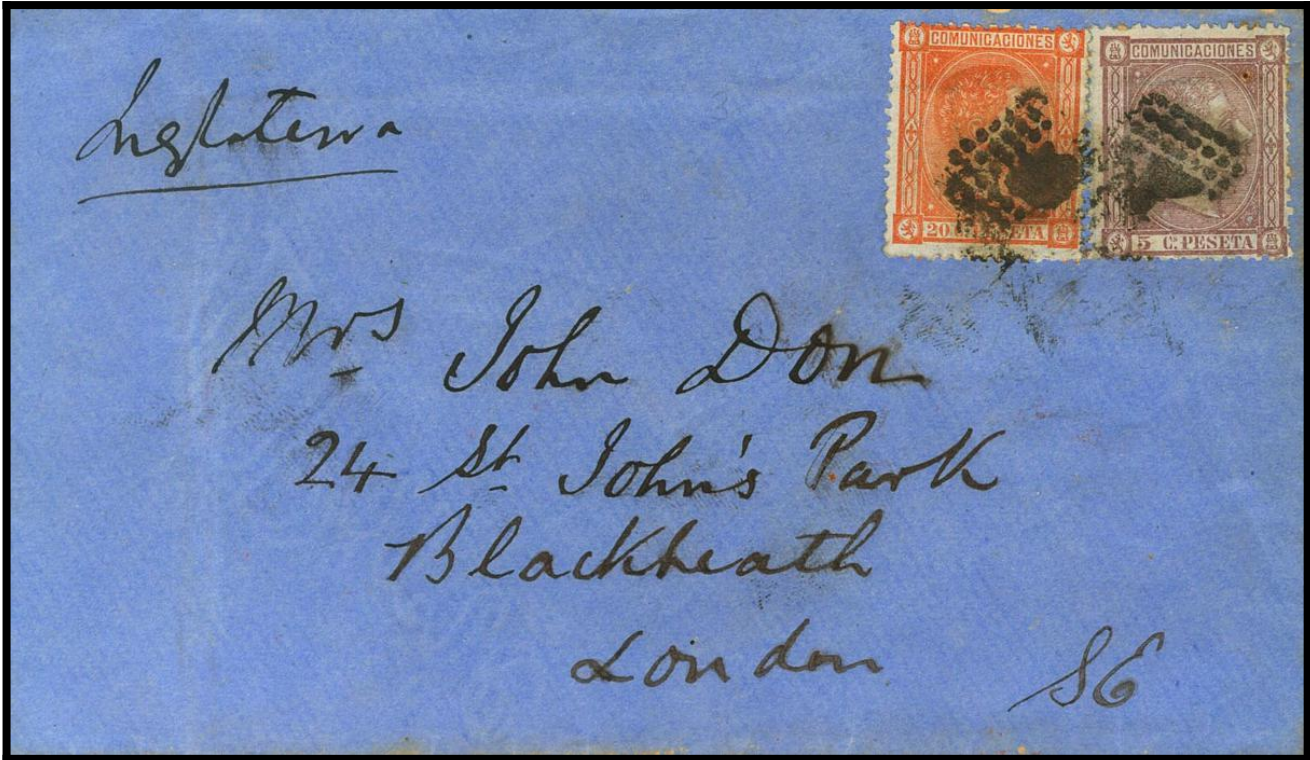 Inglaterra
COMUNICACIONES
COMUNICACIONES
20 C. PESETA
5 C. PESETA
Mrs John Don
24 St. John's Park
Blackheath
London SE